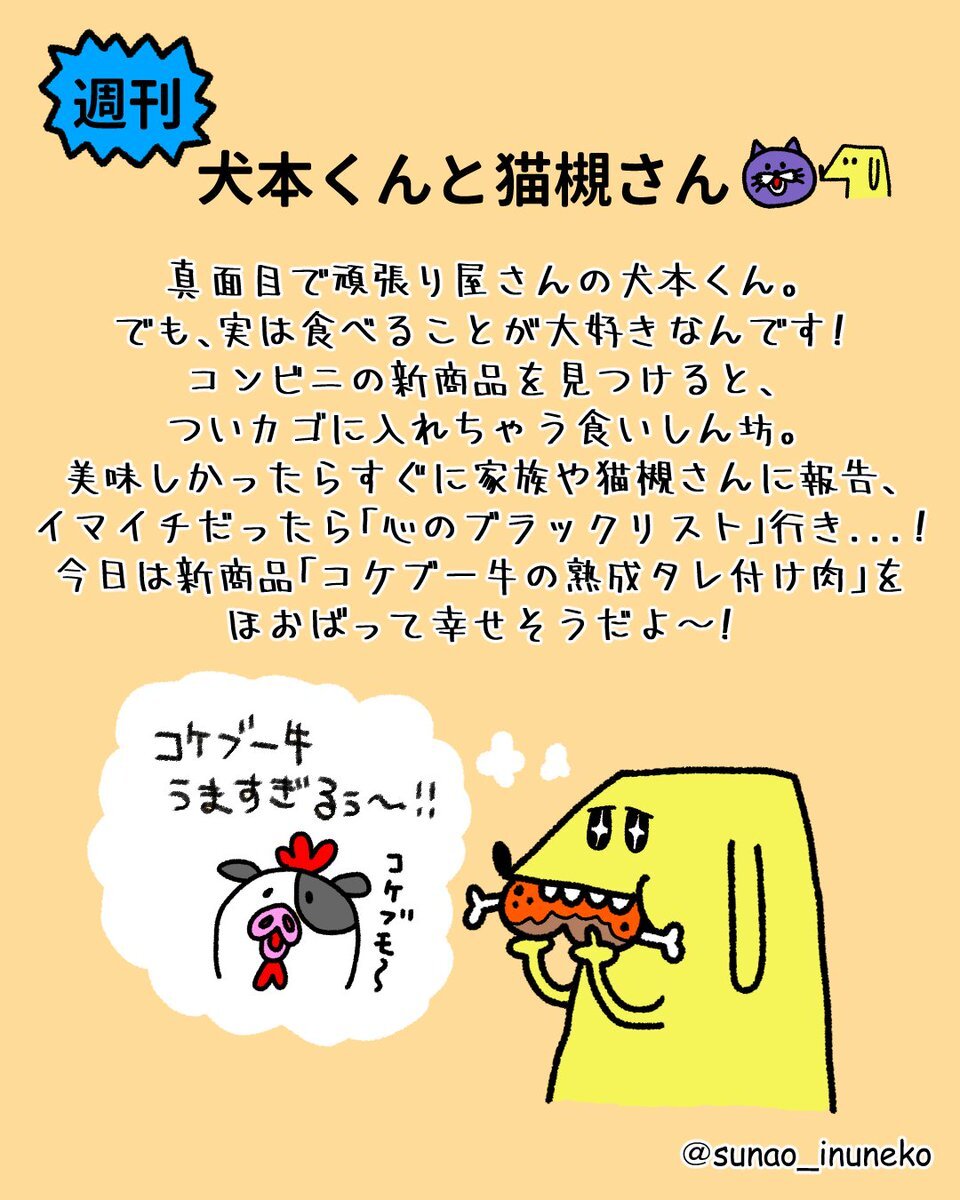 週刊
犬本くんと猫槻さん
真面目で頑張り屋さんの犬本くん。
でも、実は食べることが大好きなんです！
コンビニの新商品を見つけると、
ついカゴに入れちゃう食いしん坊。
美味しかったらすぐに家族や猫槻さんに報告、
イマイチだったら「心のブラックリスト」行き...！
今日は新商品「コケブー牛の熟成タレ付け肉」を
ほおばって幸せそうだよ〜！
コケブー牛
うますぎるぅ〜!!
コケブモ〜
@sunao_inuneko